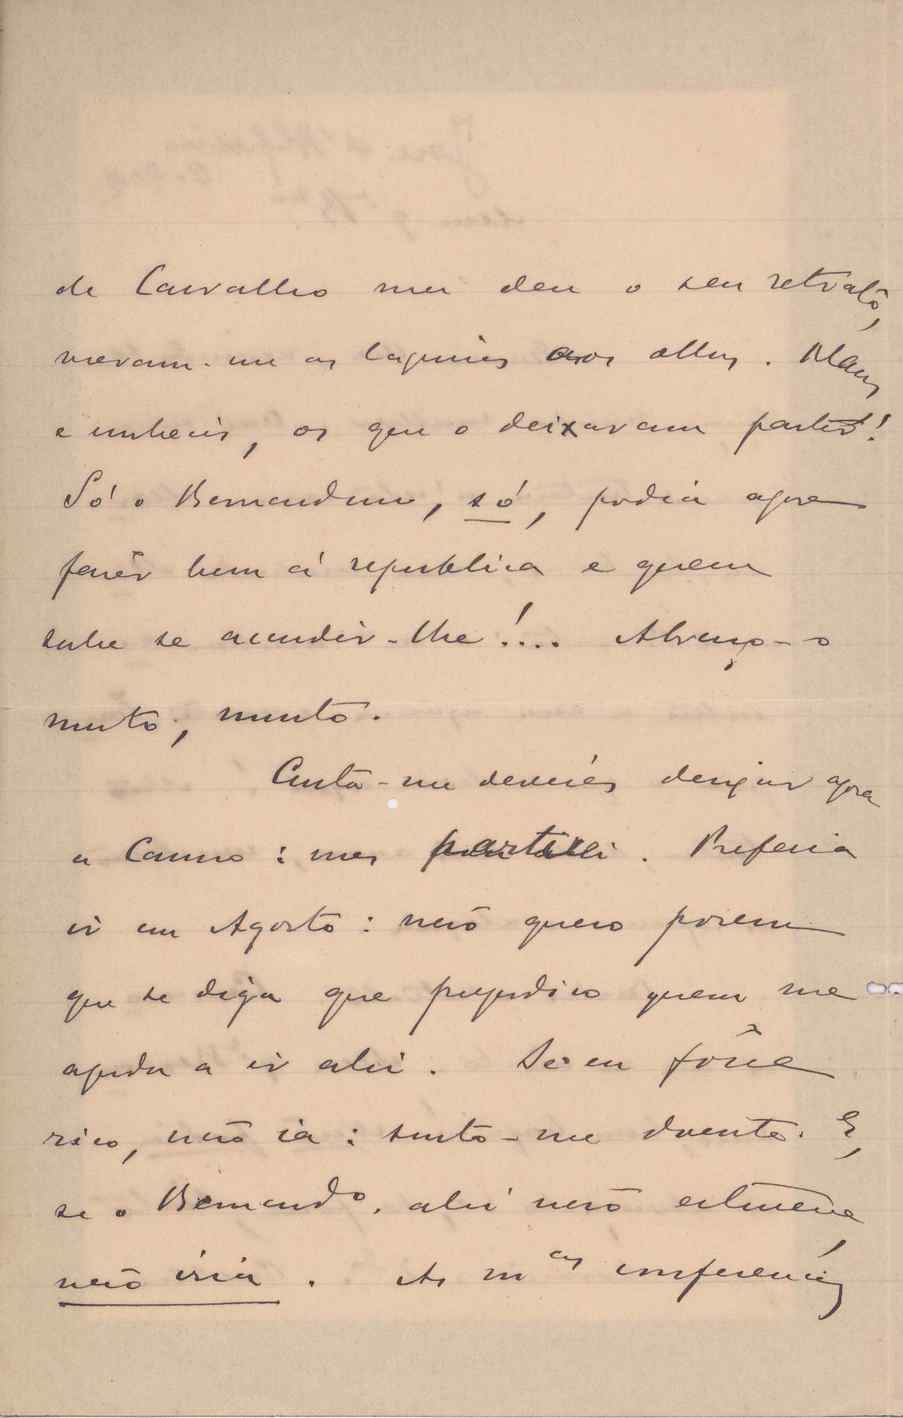 de Carvalho me deu o seu retrato,
vieram-me as lagrimas aos olhos. Maus
e imbecis, os que o deixaram partir!
Só o Bernardino, só, podia agora
fazêr bem á republica e quem
sabe se acudir-lhe!... Abraço-o
muito, muito.
Custa-me deveras deixar agora
a Camno : mas partirei. Preferia
ir em Agosto : não quero porem
que se diga que prejudico quem me
ajuda a ir ahi. Se eu fôsse
rico, não ia : sinto-me doente. E,
se o Bernardo. ahi não estivesse,
não iria. As m.as conferencias